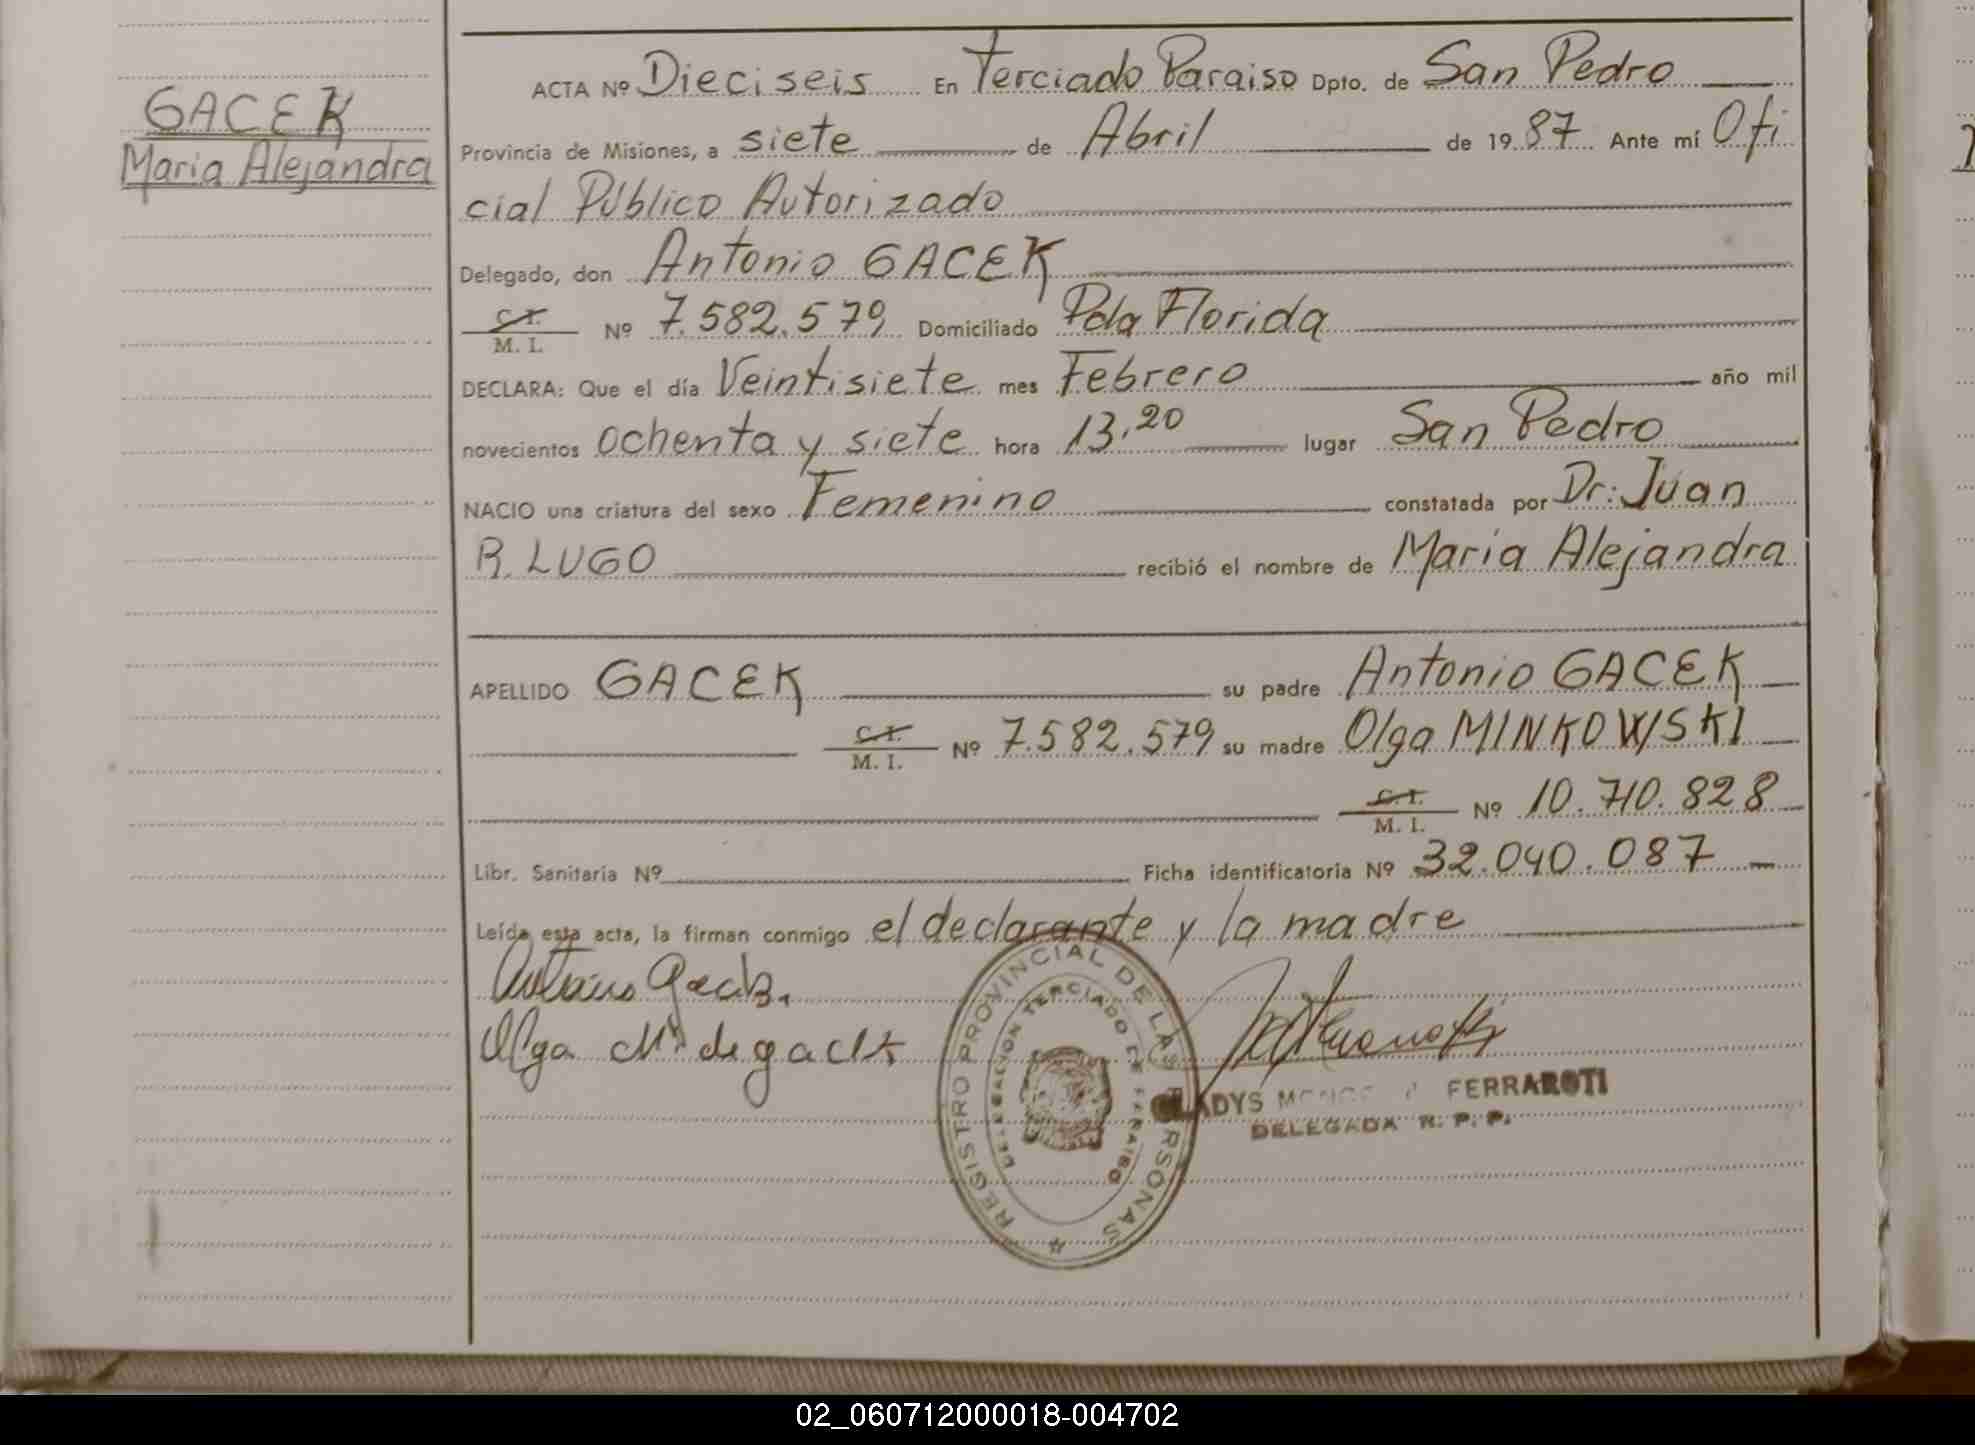 GACEK
Maria Alejandra
ACTA Nº Dieciseis En Terciado Paraiso Dpto. de San Pedro
Provincia de Misiones, a siete de Abril de 1987 Ante mí Ofi
cial Público Autorizado
Delegado, don Antonio GACEK
C. I. M. I. Nº 7.582.579 Domiciliado Pda Florida
DECLARA: Que el día Veintisiete mes Febrero año mil
novecientos ochenta y siete hora 13,20 lugar San Pedro
NACIO una criatura del sexo Femenino constatada por Dr: Juan
R. LUGO recibió el nombre de Maria Alejandra
APELLIDO GACEK su padre Antonio GACEK
C. I. M. I. Nº 7.582.579 su madre Olga MINKOWISKI
C. I. M. I. Nº 10.710.828
Libr. Sanitaria Nº Ficha identificatoria Nº 32.040.087
Leída esta acta, la firman conmigo el declarante y la madre
Antonio Gacek.
Olga M. de gacek
REGISTRO PROVINCIAL DE LAS PERSONAS
DELEGACION TERCIADO PARAISO
GLADYS FERRAROTI
DELEGADA R. P. P.
02_060712000018-004702